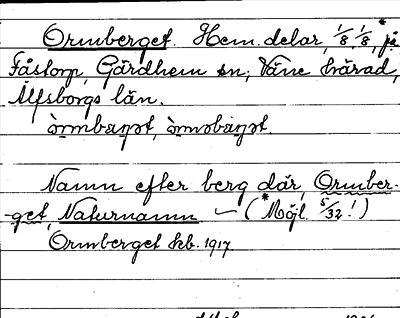 Ormberget. Hem. delar, 1/8, 1/8, *på
Fåstorp, Gärdhem sn; Väne härad,
Älfsborgs län.
Namn efter berg där, Ormber-
-get, Naturnamn ~ (*Möjl. 5/32!)
Ormberget kb. 1917